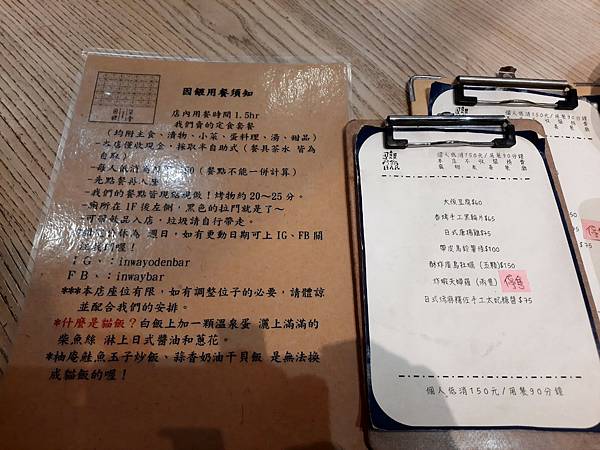 因緣用餐須知
店內用餐時間1.5hr
我們賣的定食套餐
(均附主食、漬物、小菜、蛋料理、湯、甜品)
-本店僅收現金,採取半自助式(餐具茶水 皆為
自取)
-每人低消為
(餐點不能一併計算)
-先點餐再入座
-我們的餐點皆現點現做!烤物約20~25分。
-廁所在1F後左側,黑色的拉門就是了~
-可帶飲品入店,垃圾請自行帶走。
週日,如有更動日期可上IG、FB關
注我們喔!
IG、:inwayodenbar
FB、:inwaybar
***本店座位有限,如有調整位子的必要,請體諒
並配合我們的安排。
*什麼是貓飯?白飯上加一顆溫泉蛋 灑上滿滿的
柴魚絲 淋上日式醬油和蔥花。
*柚庵鮭魚玉子炒飯、蒜香奶油干貝飯 是無法換
成貓飯的喔!
個人低消150元/用餐90分鐘
大阪豆腐$60
香烤手工黑輪片$65
日式唐揚雞$75
帶皮馬鈴薯條$100
酥炸廣島牡蠣(五顆)$150
炸蝦天婦羅(兩隻)
停售
日式炸蒟蒻佐手工太妃糖醬$75
個人低消150元/用餐90分鐘
個人低消150元/用餐90分鐘